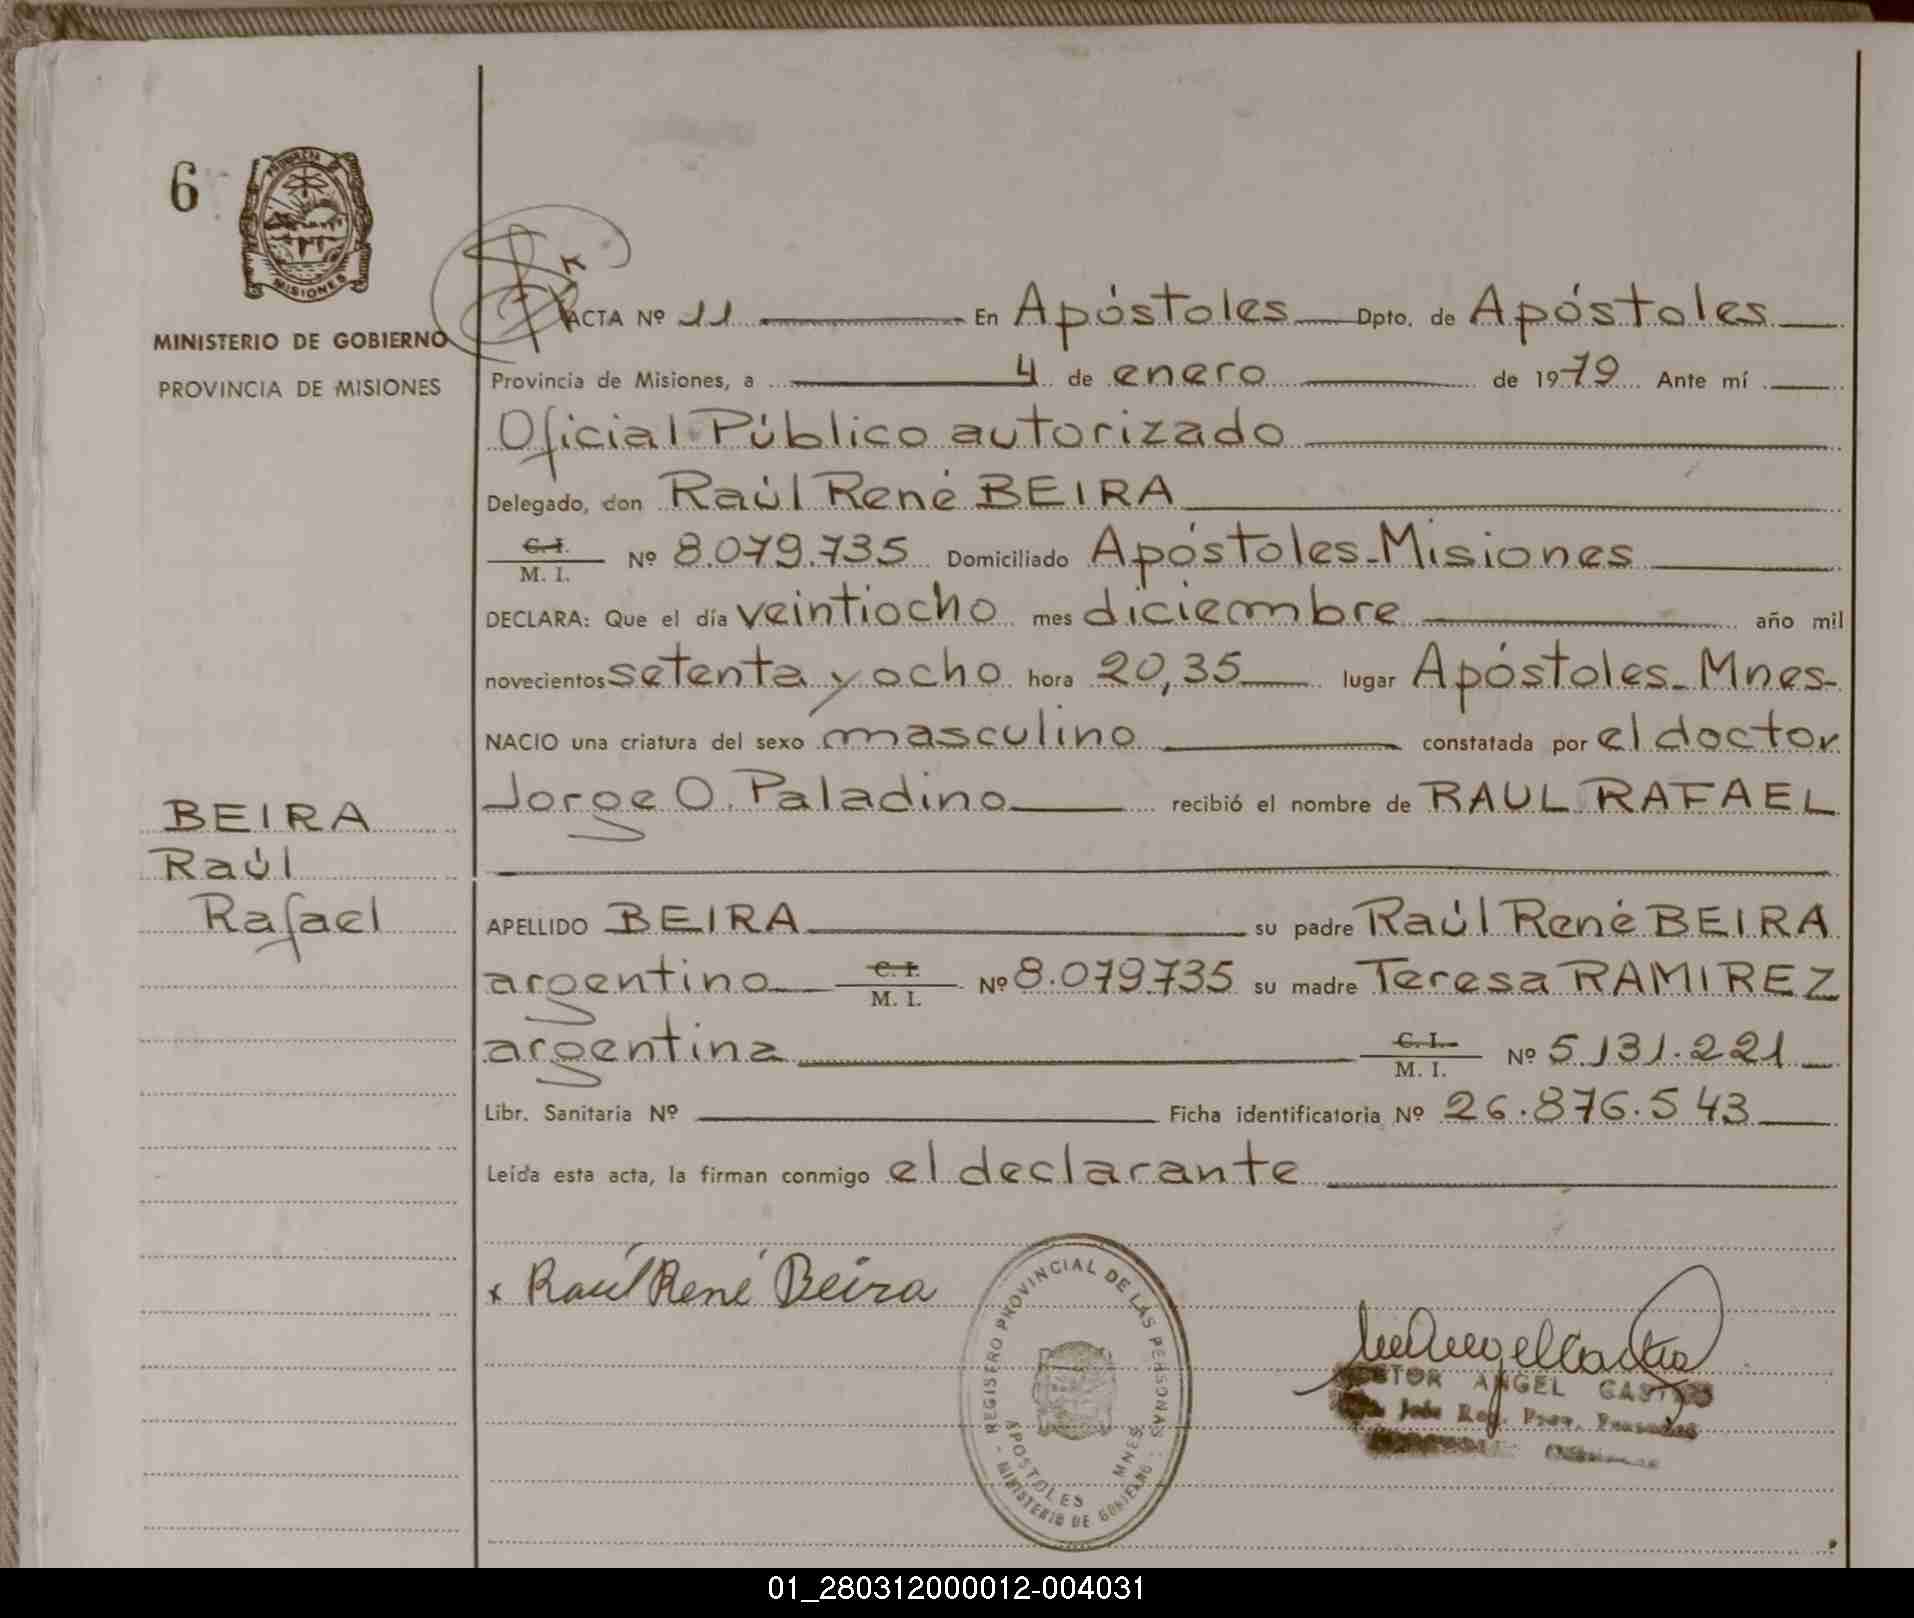 6
PROVINCIA DE
MISIONES
MINISTERIO DE GOBIERNO
PROVINCIA DE MISIONES
BEIRA
Raúl
Rafael
ACTA Nº 11 En Apóstoles Dpto. de Apóstoles
Provincia de Misiones, a 4 de enero de 1979 Ante mí
Oficial Público autorizado
Delegado, don Raúl René BEIRA
C. I.
M. I. Nº 8.079.735 Domiciliado Apóstoles-Misiones
DECLARA: Que el día veintiocho mes diciembre año mil
novecientos setenta y ocho hora 20,35 lugar Apóstoles-Mnes-
NACIO una criatura del sexo masculino constatada por el doctor
Jorge O. Paladino recibió el nombre de RAUL RAFAEL
APELLIDO BEIRA su padre Raúl René BEIRA
argentino C. I.
M. I. Nº 8.079.735 su madre Teresa RAMIREZ
argentina C. I.
M. I. Nº 5.131.221
Libr. Sanitaria Nº Ficha identificatoria Nº 26.876.543
Leída esta acta, la firman conmigo el declarante
x Raúl René Beira
REGISTRO PROVINCIAL DE LAS PERSONAS
APOSTOLES MNES
- MINISTERIO DE GOBIERNO -
ANGEL CASTRO
Jefe Reg. Prov. Personas
Misiones
01_280312000012-004031